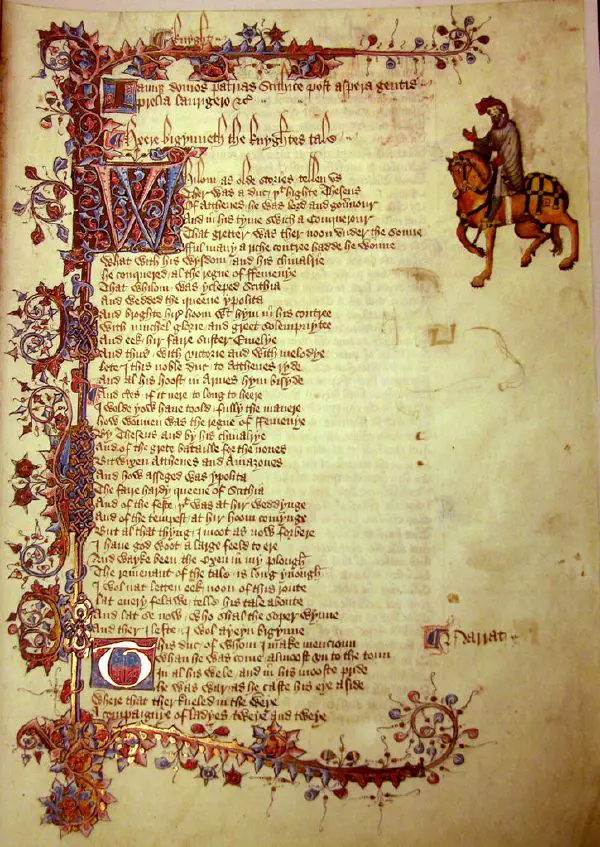 Knyght
Iamque domos patrias Scithice post aspera gentis
prelia laurigero &c
Heere bigynneth the knyghtes tale
Whilom as olde stories tellen us
Ther was a duc þt highte Theseus
Of Atthenes he was lord and gouernour
And in his tyme swich a conquerour
That gretter was ther noon vnder the sonne
Ful many a riche contree hadde he wonne
What with his wysdom and his chiualrie
He conquered al the regne of ffemenye
That whilom was ycleped Scithia
And wedded the queene ypolita
And broghte hir hoom wt hym in his contree
With muchel glorie and greet solempnytee
And eek hir faire suster Emelye
And thus with victorie and with melodye
Lete I this noble duc to Atthenes ryde
And al his hoost in Armes hym bisyde
And certes if it nere to long to heere
I wolde yow haue toold fully the manere
How wonnen was the regne of ffemenye
By Theseus and by his chiualrye
And of the grete bataille for the nones
Bitwixen Atthenes and Amazones
And how asseged was ypolita
The faire hardy queene of Scithia
And of the feste þt was at hir weddynge
And of the tempest at hir hoom comynge
But al that thyng I moot as now forbere
I haue god woot a large feeld to ere
And wayke been the oxen in my plough
The remenant of the tale is long ynough
I wol nat letten eek noon of this route
Lat euery felawe telle his tale aboute
And lat se now who shal the soper wynne
And ther I lefte I wol ayeyn bigynne
This duc of whom I make mencioun
Whan he was come almoost vn to the toun
In al his wele and in his mooste pride
He was war as he caste his eye aside
Where that ther kneled in the weye
A compaignye of ladyes tweye and tweye
Narrat